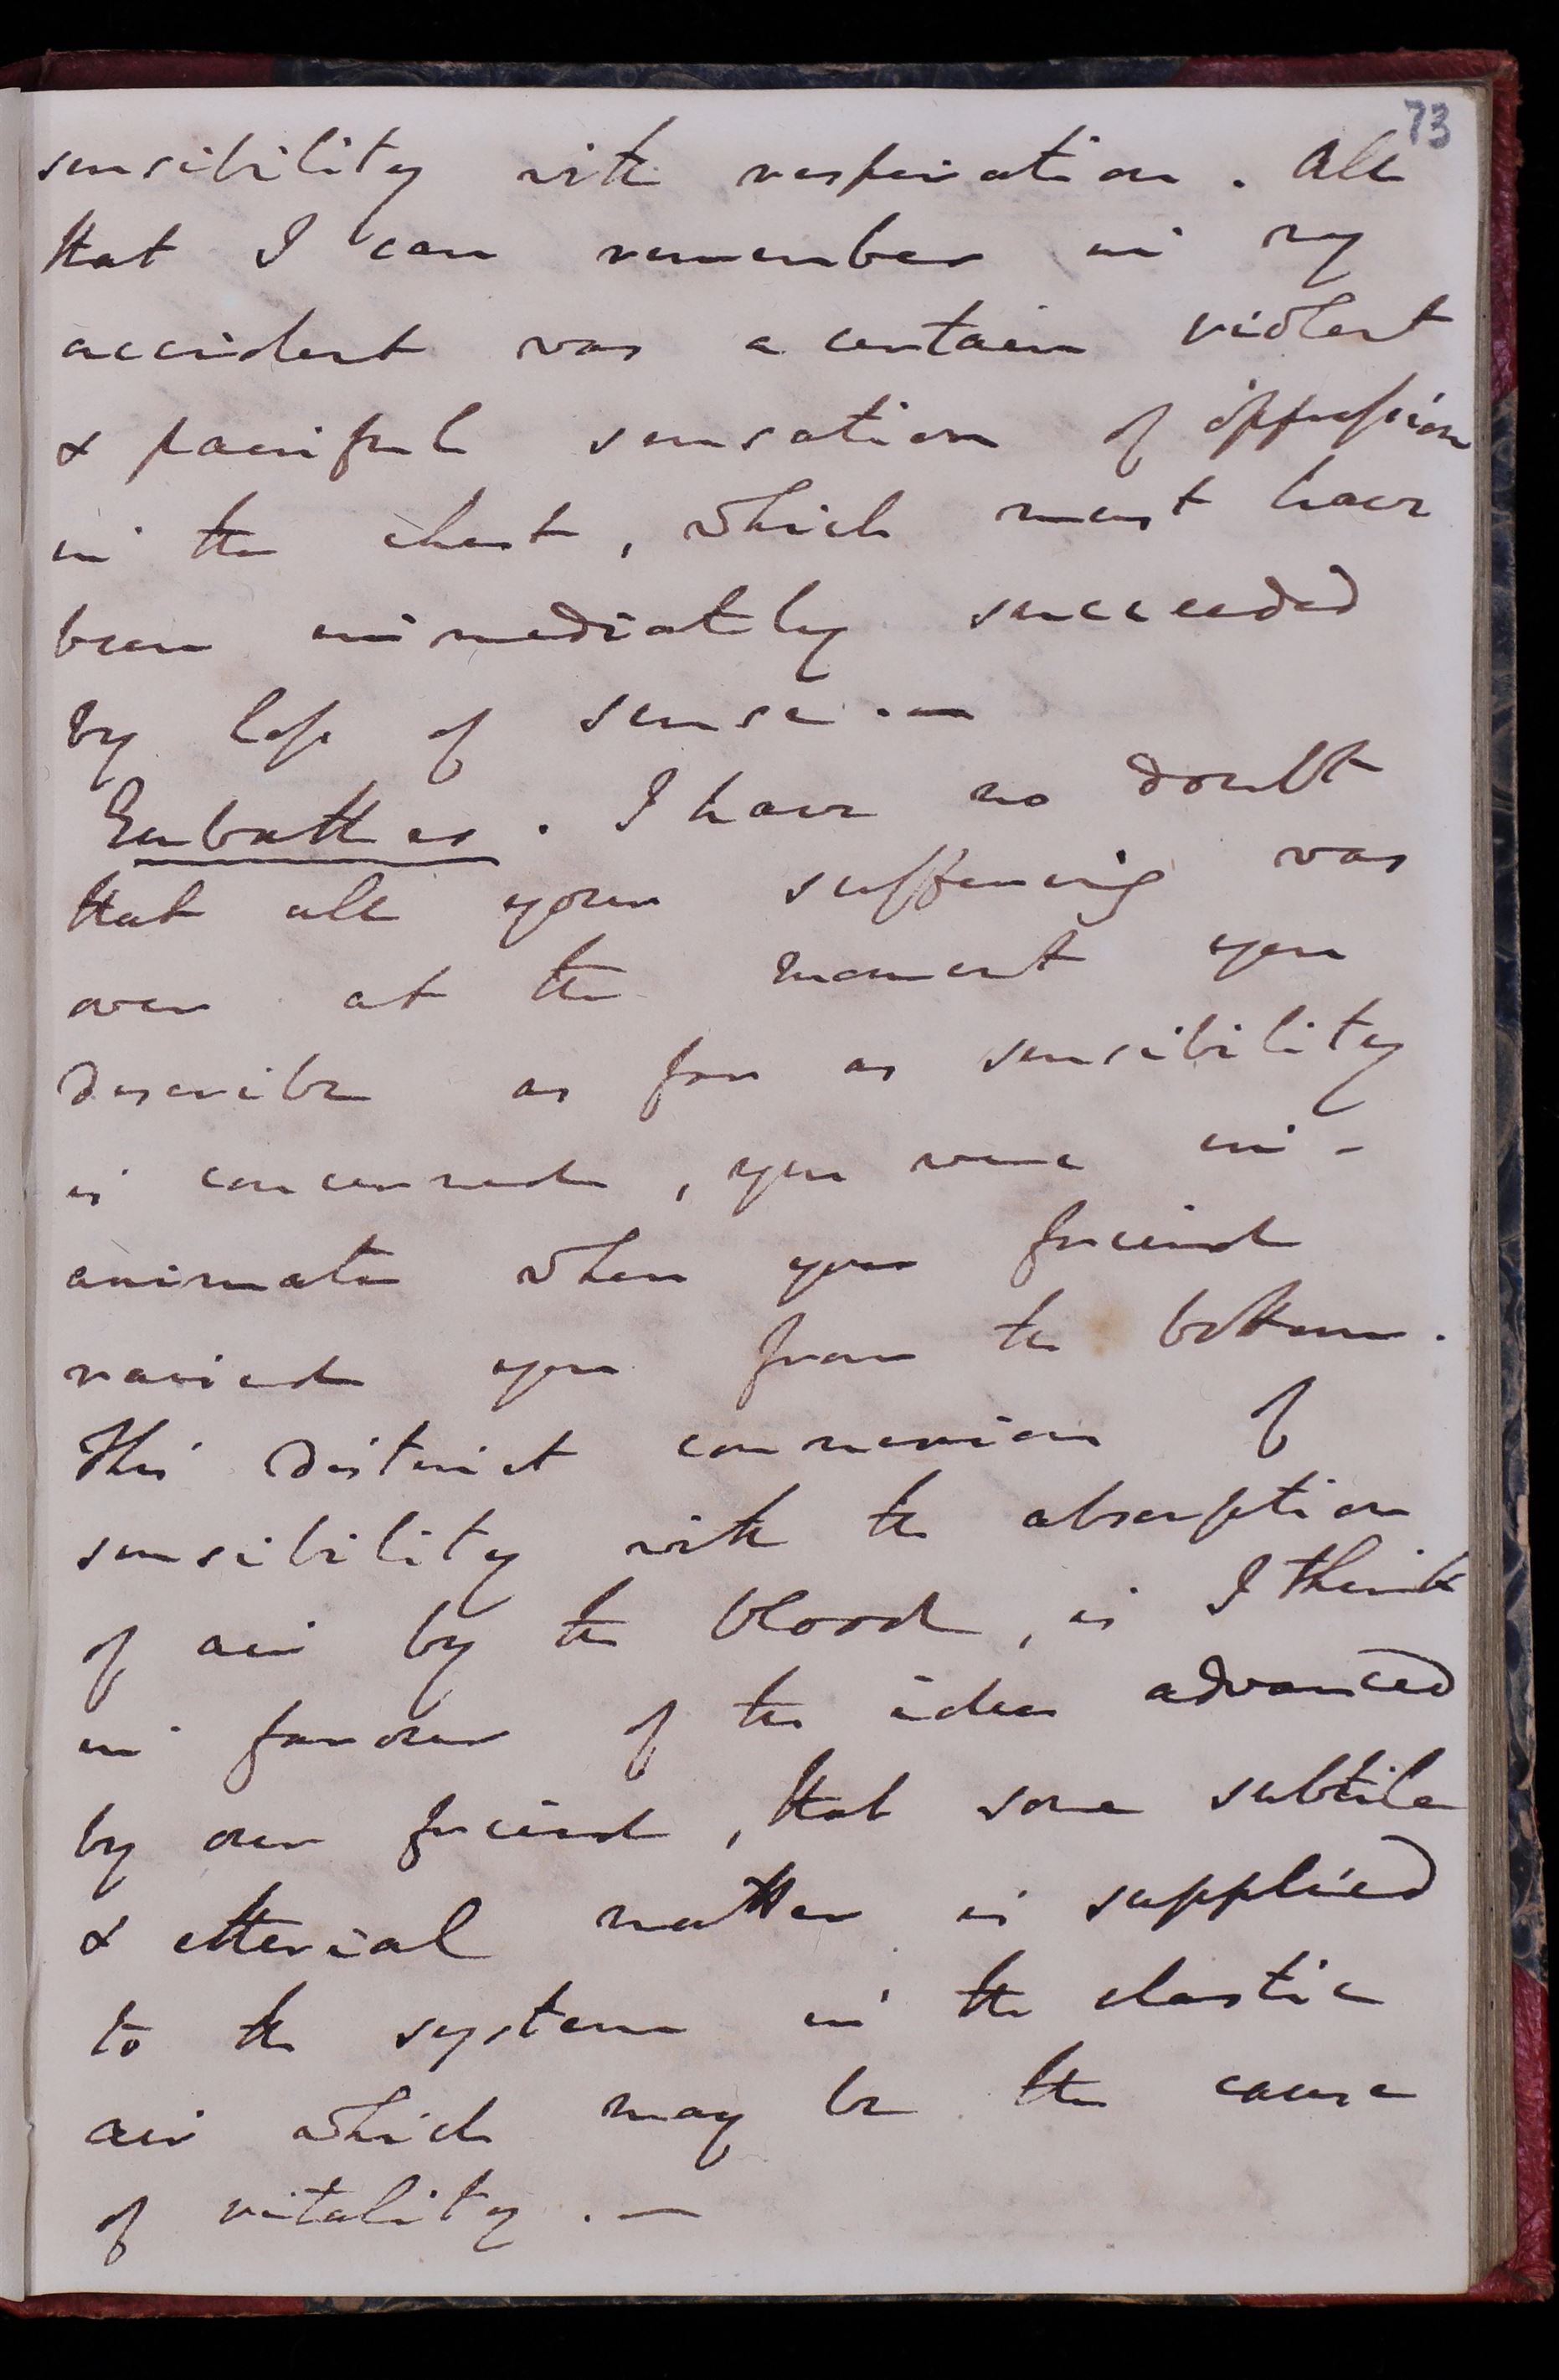 73
sensibility with respiration. All
that I can remember in my
accident was a certain violent
& painful sensation of oppression
in the chest, which must have
been immediately succeeded
by loss of sense. —
Eubathes. I have no doubt
that all your suffering was
over at the moment you
describe as far as sensibility
is concerned, you were in-
animate when your friend
raised you from the bottom.
This distinct connexion of
sensibility with the absorption
of air by the blood, is I think
in favour of the idea advanced
by our friend, that some subtile
& etherial matter is supplied
to the system in the elastic
air which may be the cause
of vitality. —